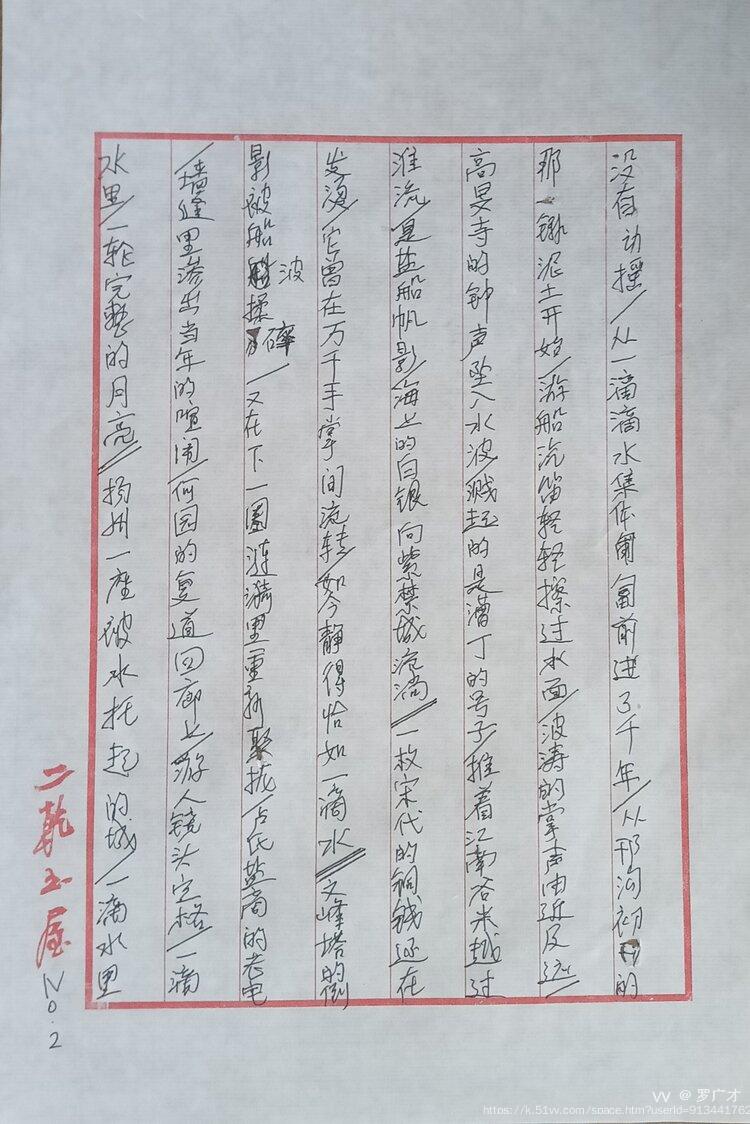 没有动摇/从一滴滴水集体匍匐前进了千年/从邗沟初的
那一锹泥土开始/游船汽笛轻轻擦过水面/波涛的掌声由近及远/
高旻寺的钟声坠入水波溅起的是漕丁的号子/推着江南谷米越过
淮流/是盐船帆影/海上的白银向紫禁城流淌//一枚宋代的铜钱还在
发烫/它曾在万千手掌间流转/如今静得恰如一滴水//文峰塔的倒
影被船波揉碎/又在下一圈涟漪里重新聚拢/卢氏盐商的老宅
/墙缝里渗出当年的喧闹/何园的复道回廊上/游人镜头定格/一滴
水里/一轮完整的月亮//扬州一座被水托起的城/一滴水里
二乾书屋
NO.2
@罗广才
https://k.51vv.com/space.htm?userId=913441762